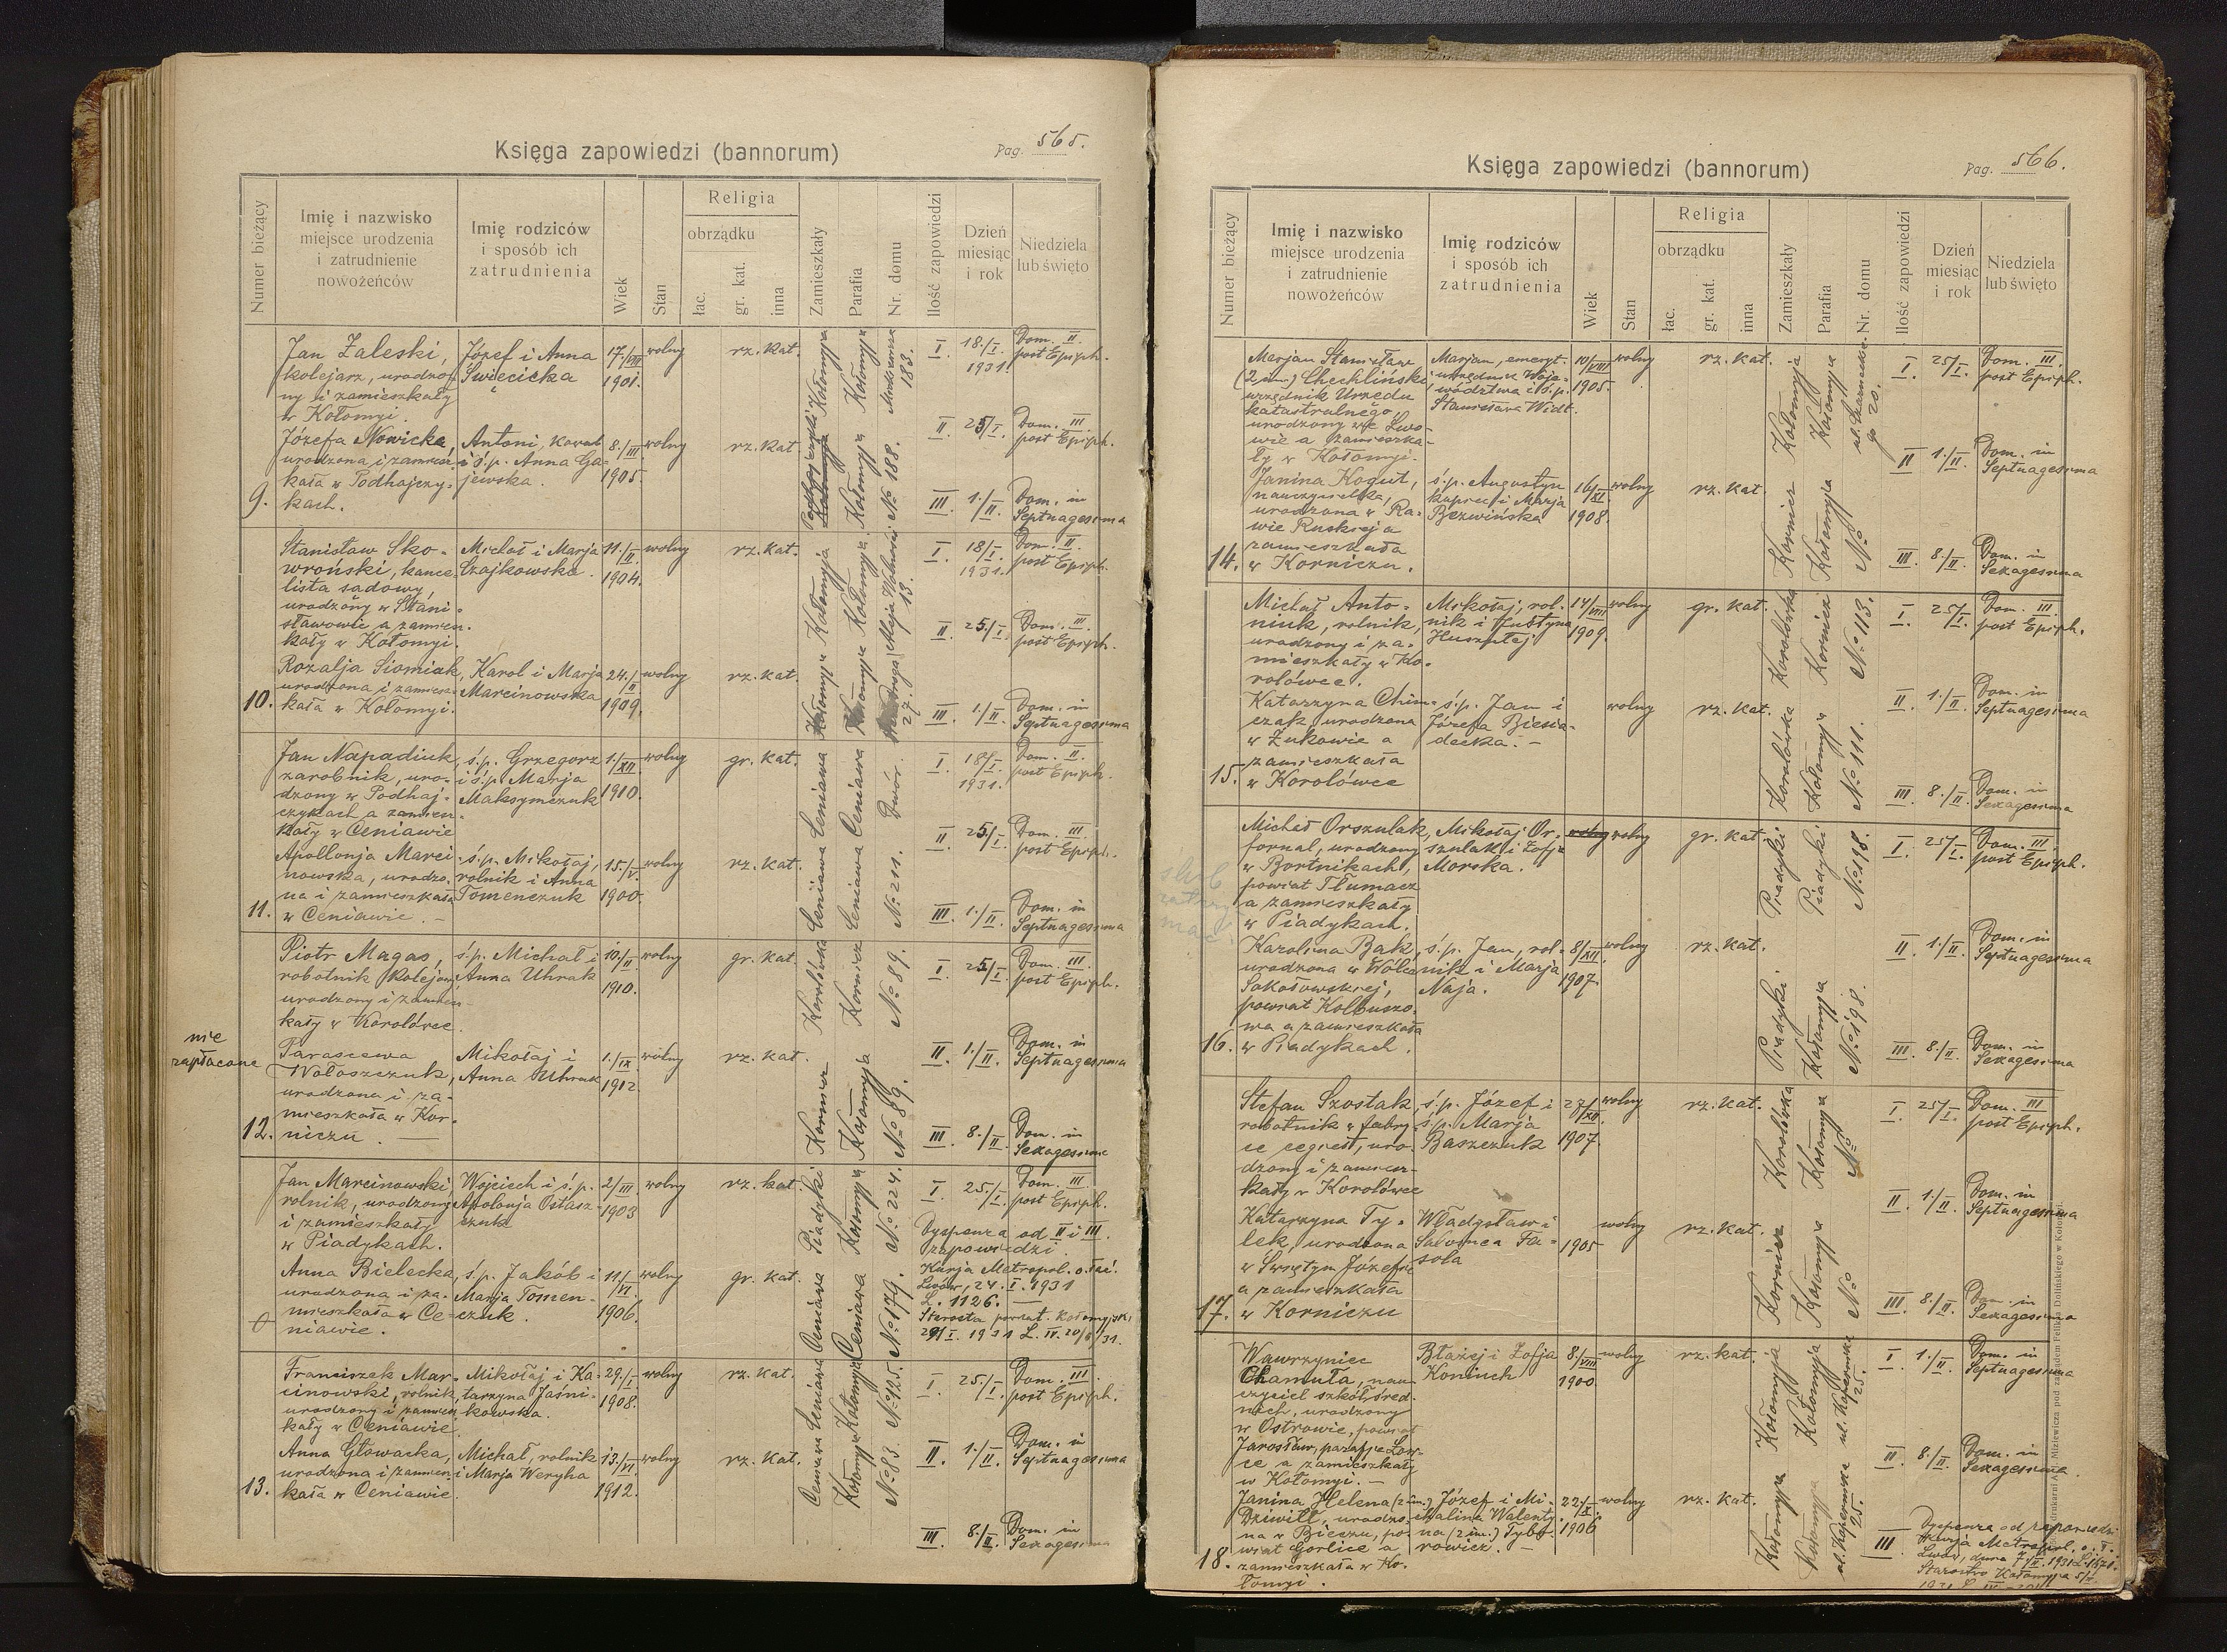 Księga zapowiedzi (bannorum)
Pag. 565.
Numer bieżący
Imię i nazwisko
miejsce urodzenia
i zatrudnienie
nowożeńców
Imię rodziców
i sposób ich
zatrudnienia
Wiek
Stan
Religia
obrządku
łac.
gr. kat.
inna
Zamieszkały
Parafia
Nr. domu
Ilość zapowiedzi
Dzień
miesiąc
i rok
Niedziela
lub święto
9.
Jan Zaleski,
kolejarz, urodzo-
ny i zamieszkały
w Kołomyi
Józef i Anna
Święcicka
17./VIII
1901.
wolny
rz. kat.
Kołomyja
Kołomyja
183.
Józefa Nowicka,
urodzona i zamiesz-
kała w Podhajczy-
kach.
Antoni, kowal
i ś.p. Anna Ga-
jewska.
8./III
1905.
wolny
rz. kat
Podhajczyki
Kołomyja
Kołomyja
No 188.
I. 18./I. 1931. Dom. II. post Epiph.
II. 25/I. Dom. III. post Epiph.
III. 1./II. Dom. in Septuagesima
10.
Stanisław Sko-
wroński, kance-
lista sądowy,
urodzony w Stani-
sławowie a zamiesz-
kały w Kołomyi.
Michał i Marja
Czajkowska.
11./II.
1904.
wolny
rz. kat.
Kołomyja
Kołomyja
13.
Rozalja Siomiak,
urodzona i zamiesz-
kała w Kołomyi.
Karol i Marja
Marcinowska
24./II
1909.
wolny
rz. kat.
Kołomyja
Kołomyja
27.
I. 18/I. 1931. Dom. II. post Epiph.
II. 25./I. Dom. III. post Epiph.
III. 1./II. Dom. in Septuagesima
11.
Jan Napadiuk,
zarobnik, uro-
dzony w Podhaj-
czykach a zamiesz-
kały w Ceniawie
ś.p. Grzegorz
i ś.p. Marja
Maksymczuk
1./XII.
1910.
wolny
gr. kat.
Ceniawa
Ceniawa
Dwór.
Apollonja Marci-
nowska, urodzo-
na i zamieszkała
w Ceniawie. -
ś.p. Mikołaj,
rolnik i Anna
Tomenczuk
15./V.
1900.
wolny
rz. kat.
Ceniawa
Ceniawa
No 211.
I. 18/I. 1931. Dom. II. post Epiph.
II. 25./I. Dom. III. post Epiph.
III. 1./II. Dom. in Septuagesima
nie
zapłacone
12.
Piotr Magas,
robotnik kolejowy,
urodzony i zamiesz-
kały w Korolówce.
ś.p. Michał i
Anna Uhrak
10./II.
1910.
wolny
gr. kat.
Korolówka
Kornicz
No 89.
Parascewa
Wołoszczuk,
urodzona i za-
mieszkała w Kor-
niczu. —
Mikołaj i
Anna Uhrak
1./IX.
1912.
wolny
rz. kat.
Kornicz
Kołomyja
No 89.
I. 25/I. Dom. III. post Epiph.
II. 1./II. Dom. in Septuagesima
III. 8./II. Dom. in Sexagesima
0
Jan Marcinowski
rolnik, urodzony
i zamieszkały
w Piadykach.
Wojciech i ś.p.
Apolonja Ostasz-
czuk
2/III.
1903
wolny
rz. kat.
Piadyki
Kołomyja
No 224.
Anna Bielecka,
urodzona i za-
mieszkała w Ce-
niawie.
ś.p. Jakób i
Marja Tomen-
czuk.
11./VI.
1906.
wolny
gr. kat.
Ceniawa
Ceniawa
No 179.
I. 25./I. Dom. III. post Epiph.
Dyspenza od II i III.
zapowiedzi.
Kurja Metropol. o. łać.
Lwów, 24. I. 1931
L. 1126. —
13.
Franciszek Mar-
cinowski, rolnik,
urodzony i zamiesz-
kały w Ceniawie.
Mikołaj i Ka-
tarzyna Jaśni-
kowska.
29./I.
1908.
wolny
rz. kat.
Ceniawa
Kołomyja
No 125.
Anna Głowacka,
urodzona i zamiesz-
kała w Ceniawie.
Michał, rolnik
i Marja Weryha
13./VI.
1912.
wolny
rz. kat.
Ceniawa
Kołomyja
No 83.
I. 25./I. Dom. III. post Epiph.
II. 1./II. Dom. in Septuagesima
III. 8./II. Dom. in Sexagesima
Księga zapowiedzi (bannorum)
Pag. 566.
Numer bieżący
Imię i nazwisko
miejsce urodzenia
i zatrudnienie
nowożeńców
Imię rodziców
i sposób ich
zatrudnienia
Wiek
Stan
Religia
obrządku
łac.
gr. kat.
inna
Zamieszkały
Parafia
Nr. domu
Ilość zapowiedzi
Dzień
miesiąc
i rok
Niedziela
lub święto
14.
Marjan Stanisław
(2 im.) Chechliński
urzędnik Urzędu
katastralnego,
urodzony we Lwo-
wie a zamieszka-
ły w Kołomyi.
Marjan, emeryt.
urzędnik Woje-
wództwa i ś.p.
Stanisława Widt.
10/VIII
1905.
wolny
rz. kat.
Kołomyja
Kołomyja
20.
Janina Kogut,
nauczycielka,
urodzona w Ra-
wie Ruskiej a
zamieszkała
w Korniczu.
ś.p. Augustyn
kupiec i Marja
Bezwińska
16/XI.
1908.
wolny
rz. kat.
Kornicz
Kołomyja
No
I. 25/I. Dom. III. post Epiph.
II 1./II. Dom. in Septuagesima
III. 8./II. Dom. in Sexagesima
15.
Michał Anto-
niuk, rolnik,
urodzony i za-
mieszkały w Ko-
rolówce.
Mikołaj, rol-
nik i Justyna
14/VIII
1909.
wolny
gr. kat.
Korolówka
Kornicz
No 113.
Katarzyna Chim-
czak urodzona
w Żukowie a
zamieszkała
w Korolówce
ś.p. Jan i
Józefa Biesia-
decka. -
wolny
rz. kat.
Korolówka
Kołomyja
No 111.
I. 25/I. Dom. III. post Epiph.
II. 1./II. Dom. in Septuagesima
III. 8./II. Dom. in Sexagesima
ślub
16.
Michał Orszulak,
fornal, urodzony
w Bortnikach,
powiat Tłumacz
a zamieszkały
w Piadykach.
Mikołaj Or-
szulak i Zofja
Morska.
wolny
wolny
gr. kat.
Piadyki
Piadyki
No 198.
Karolina Bąk,
urodzona w Wólce
Sokołowskiej,
powiat Kolbuszo-
wa a zamieszkała
w Piadykach.
ś.p. Jan, rol-
nik i Marja
Naja.
8/XII.
1907.
wolny
rz. kat.
Piadyki
Kołomyja
No 198.
I. 25/I. Dom. III. post Epiph.
II. 1./II. Dom. in Septuagesima
III. 8./II. Dom. in Sexagesima
17.
Stefan Szostak,
robotnik w fabry-
ce cegieł, uro-
dzony i zamiesz-
kały w Korolówce
ś.p. Józef i
ś.p. Marja
Baszczuk
27/XII.
1907.
wolny
rz. kat.
Korolówka
Kołomyja
No
Katarzyna Ty-
lek, urodzona
w Świętym Józefie
a zamieszkała
w Korniczu
Władysław i
Salomea Fa-
sola
1905
wolny
rz. kat.
Kornicz
Kołomyja
No
I. 25/I. Dom. III post Epiph.
II. 1./II. Dom. in Septuagesima
III. 8./II. Dom. in Sexagesima
18.
Wawrzyniec
Chamuła, nau-
czyciel szkół śred-
nich, urodzony
w Ostrowie, powiat
Jarosław,
a zamieszkały
w Kołomyi. —
Błażej i Zofja
Koniuch
8./VIII
1900.
wolny
rz. kat.
Kołomyja
Kołomyja
25.
Janina Helena (2 im.)
Dziwill, urodzo-
na w Bieczu, po-
wiat Gorlice a
zamieszkała w Ko-
łomyi.
Józef i Mi-
chalina Walenty-
na (2 im.) Tybo-
rowicz. -
22/X.
1906.
wolny
rz. kat.
Kołomyja
Kołomyja
25.
I 1./II. Dom. in Septuagesima
II 8./II. Dom. in Sexagesima.
III. Dyspenza od zapowiedzi